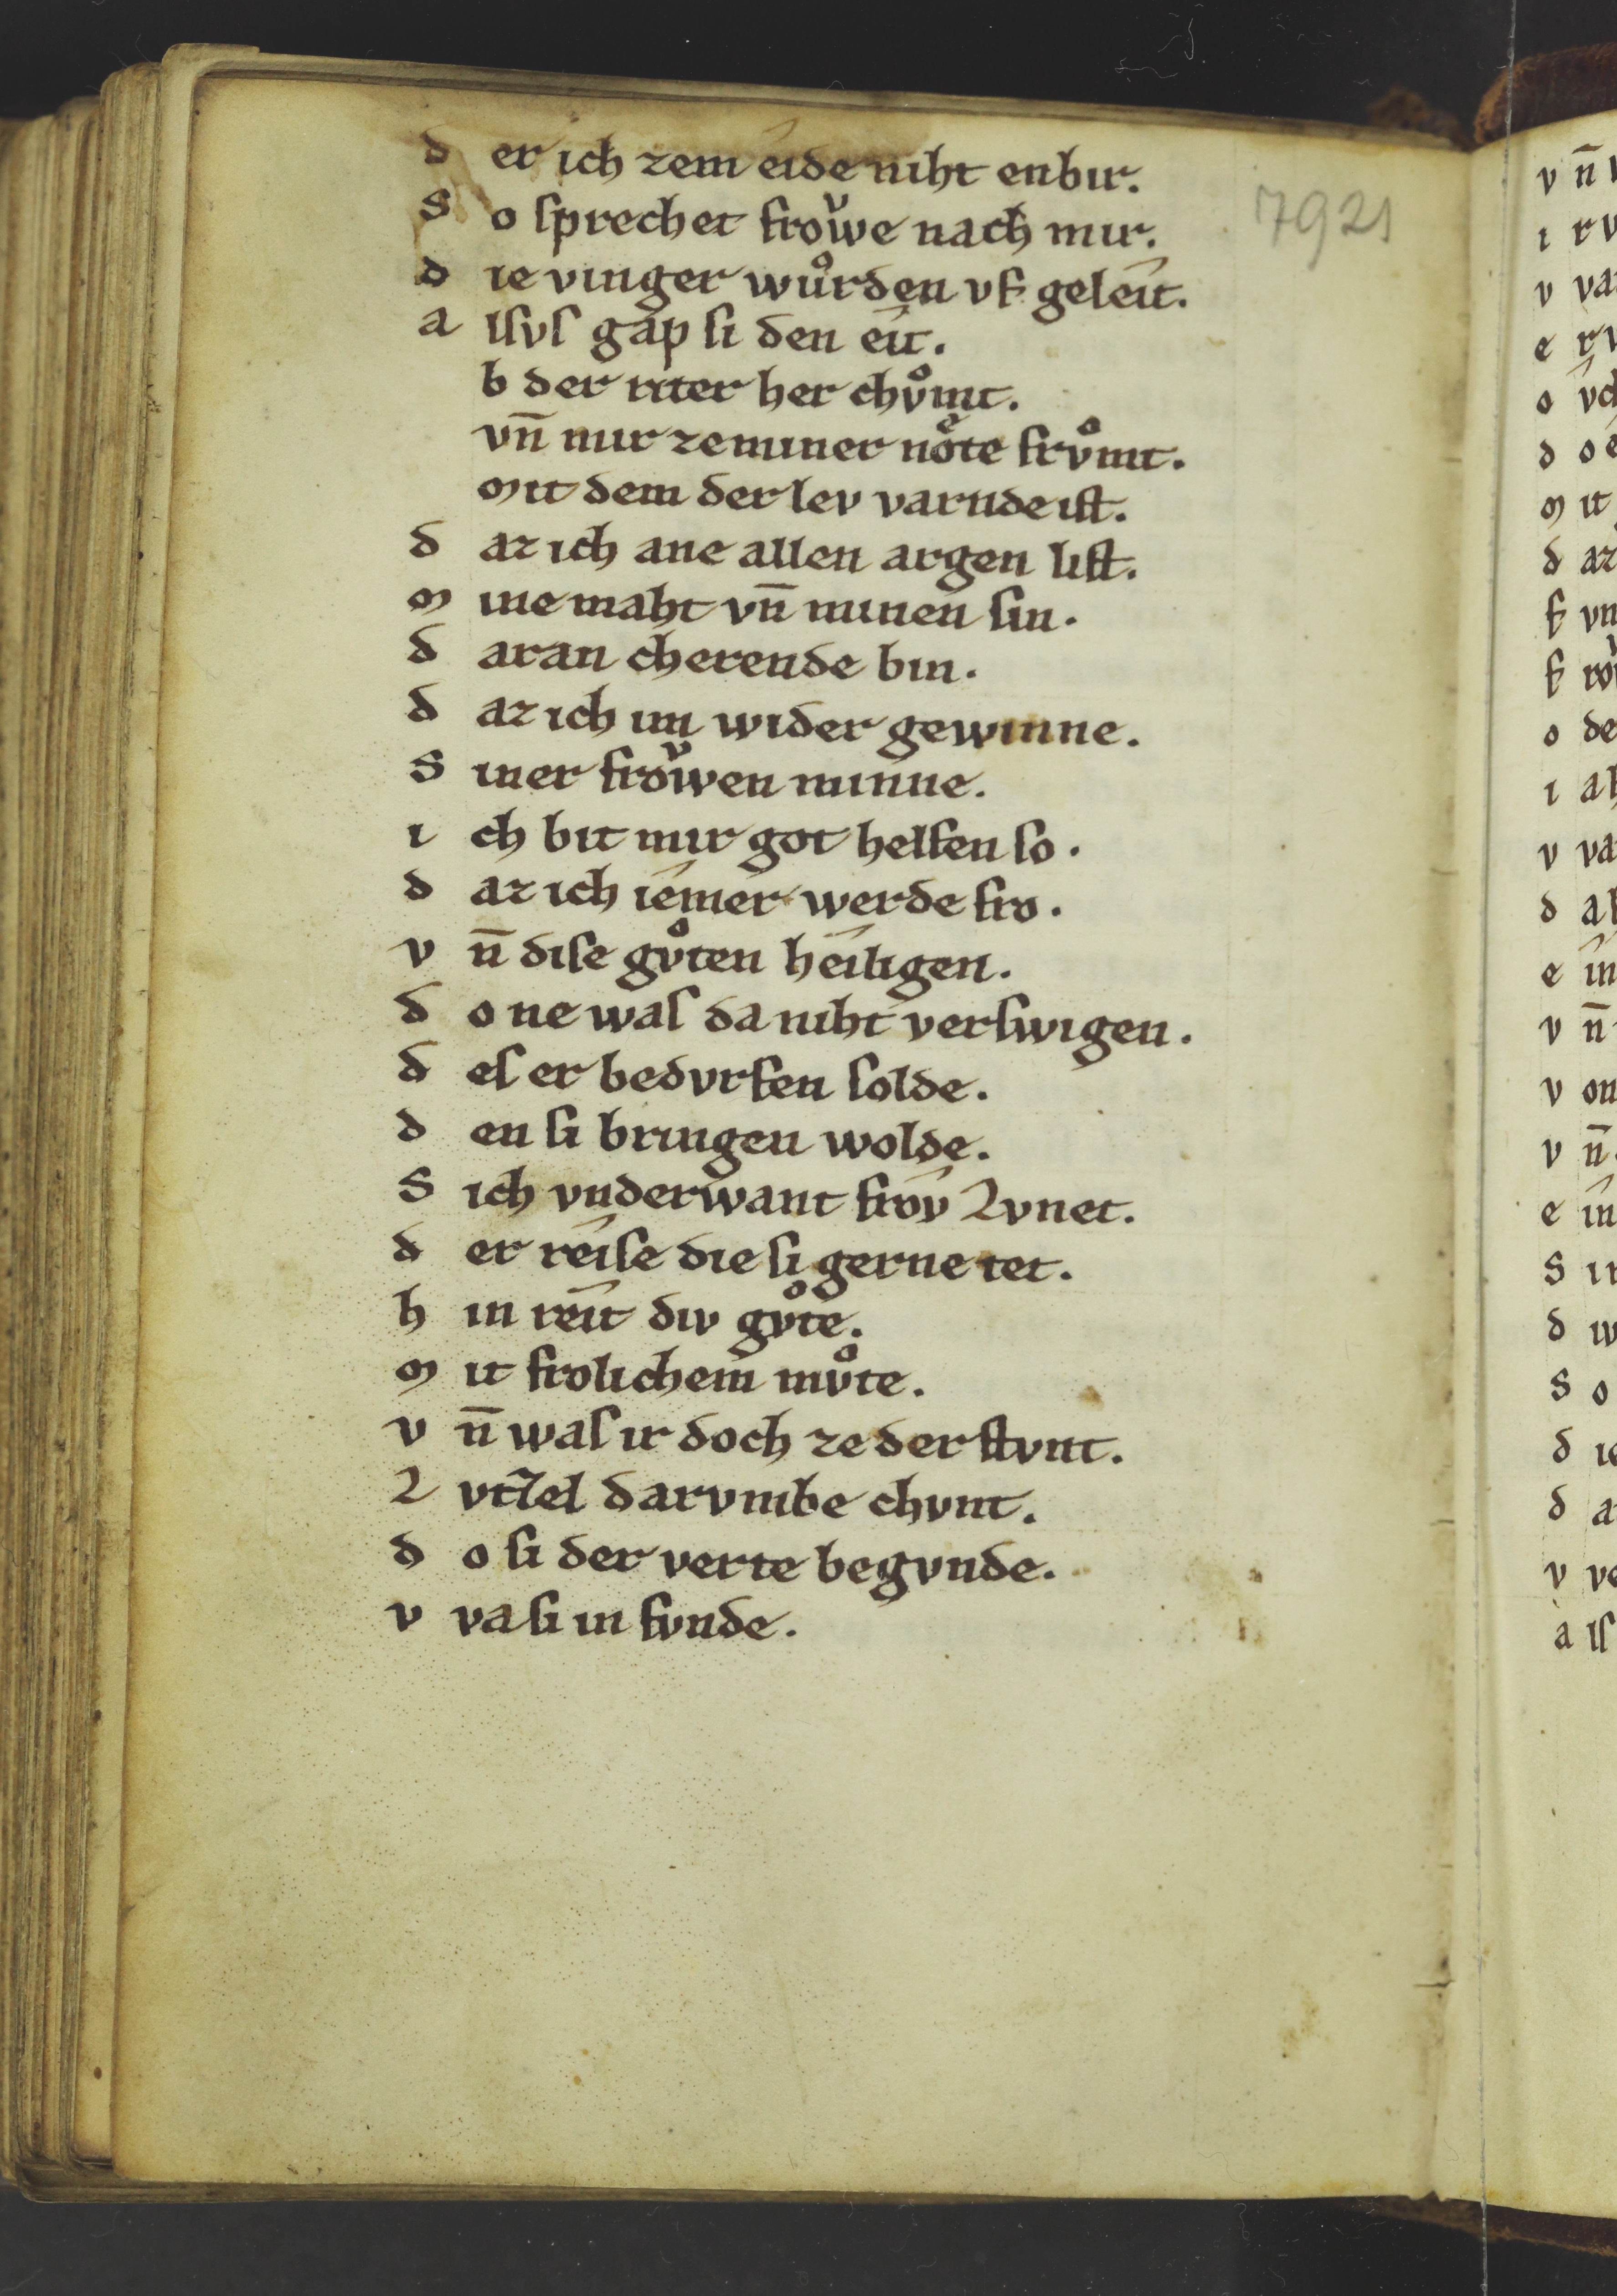 d er ich zem eide niht enbir.
S o ſprechet froͮwe nach mir.
7921
d ie vinger wuͦrden vf geleit.
a lſvſ gap ſi den eit.
b der riter her chvͦmt.
vn̄ mir ze miner noͤte frvͦmt.
mit dem der lev varnde iſt.
d az ich ane allen argen liſt.
m ine maht vn̄ minen ſin.
d aran cherende bin.
d az ich im wider gewinne.
S iner froͮwen minne.
i ch bit mir got helfen ſo.
d az ich iemer werde fro.
v n̄ diſe gvͦten heiligen.
d o ne waſ da niht verſwigen.
d eſ er bedvrfen ſolde.
d en ſi bringen wolde.
S ich vnderwant frov Lvnet.
d er reiſe die ſi gerne tet.
h in reit div gvͦte.
m it frolichem mvͦte.
v n̄ waſ ir doch ze der ſtvnt.
L vtzel darvmbe chvnt.
d o ſi der verte begvnde.
v va ſi in fvnde.
v n̄
i rv
v va
e rv
o vch
d o
m it
d az
f vn
f ro
o de
i ah
v va
d al
e in
v n̄
v on
v n̄
e in
S ir
d iv
S o
d ie
d a
v ve
a lſ